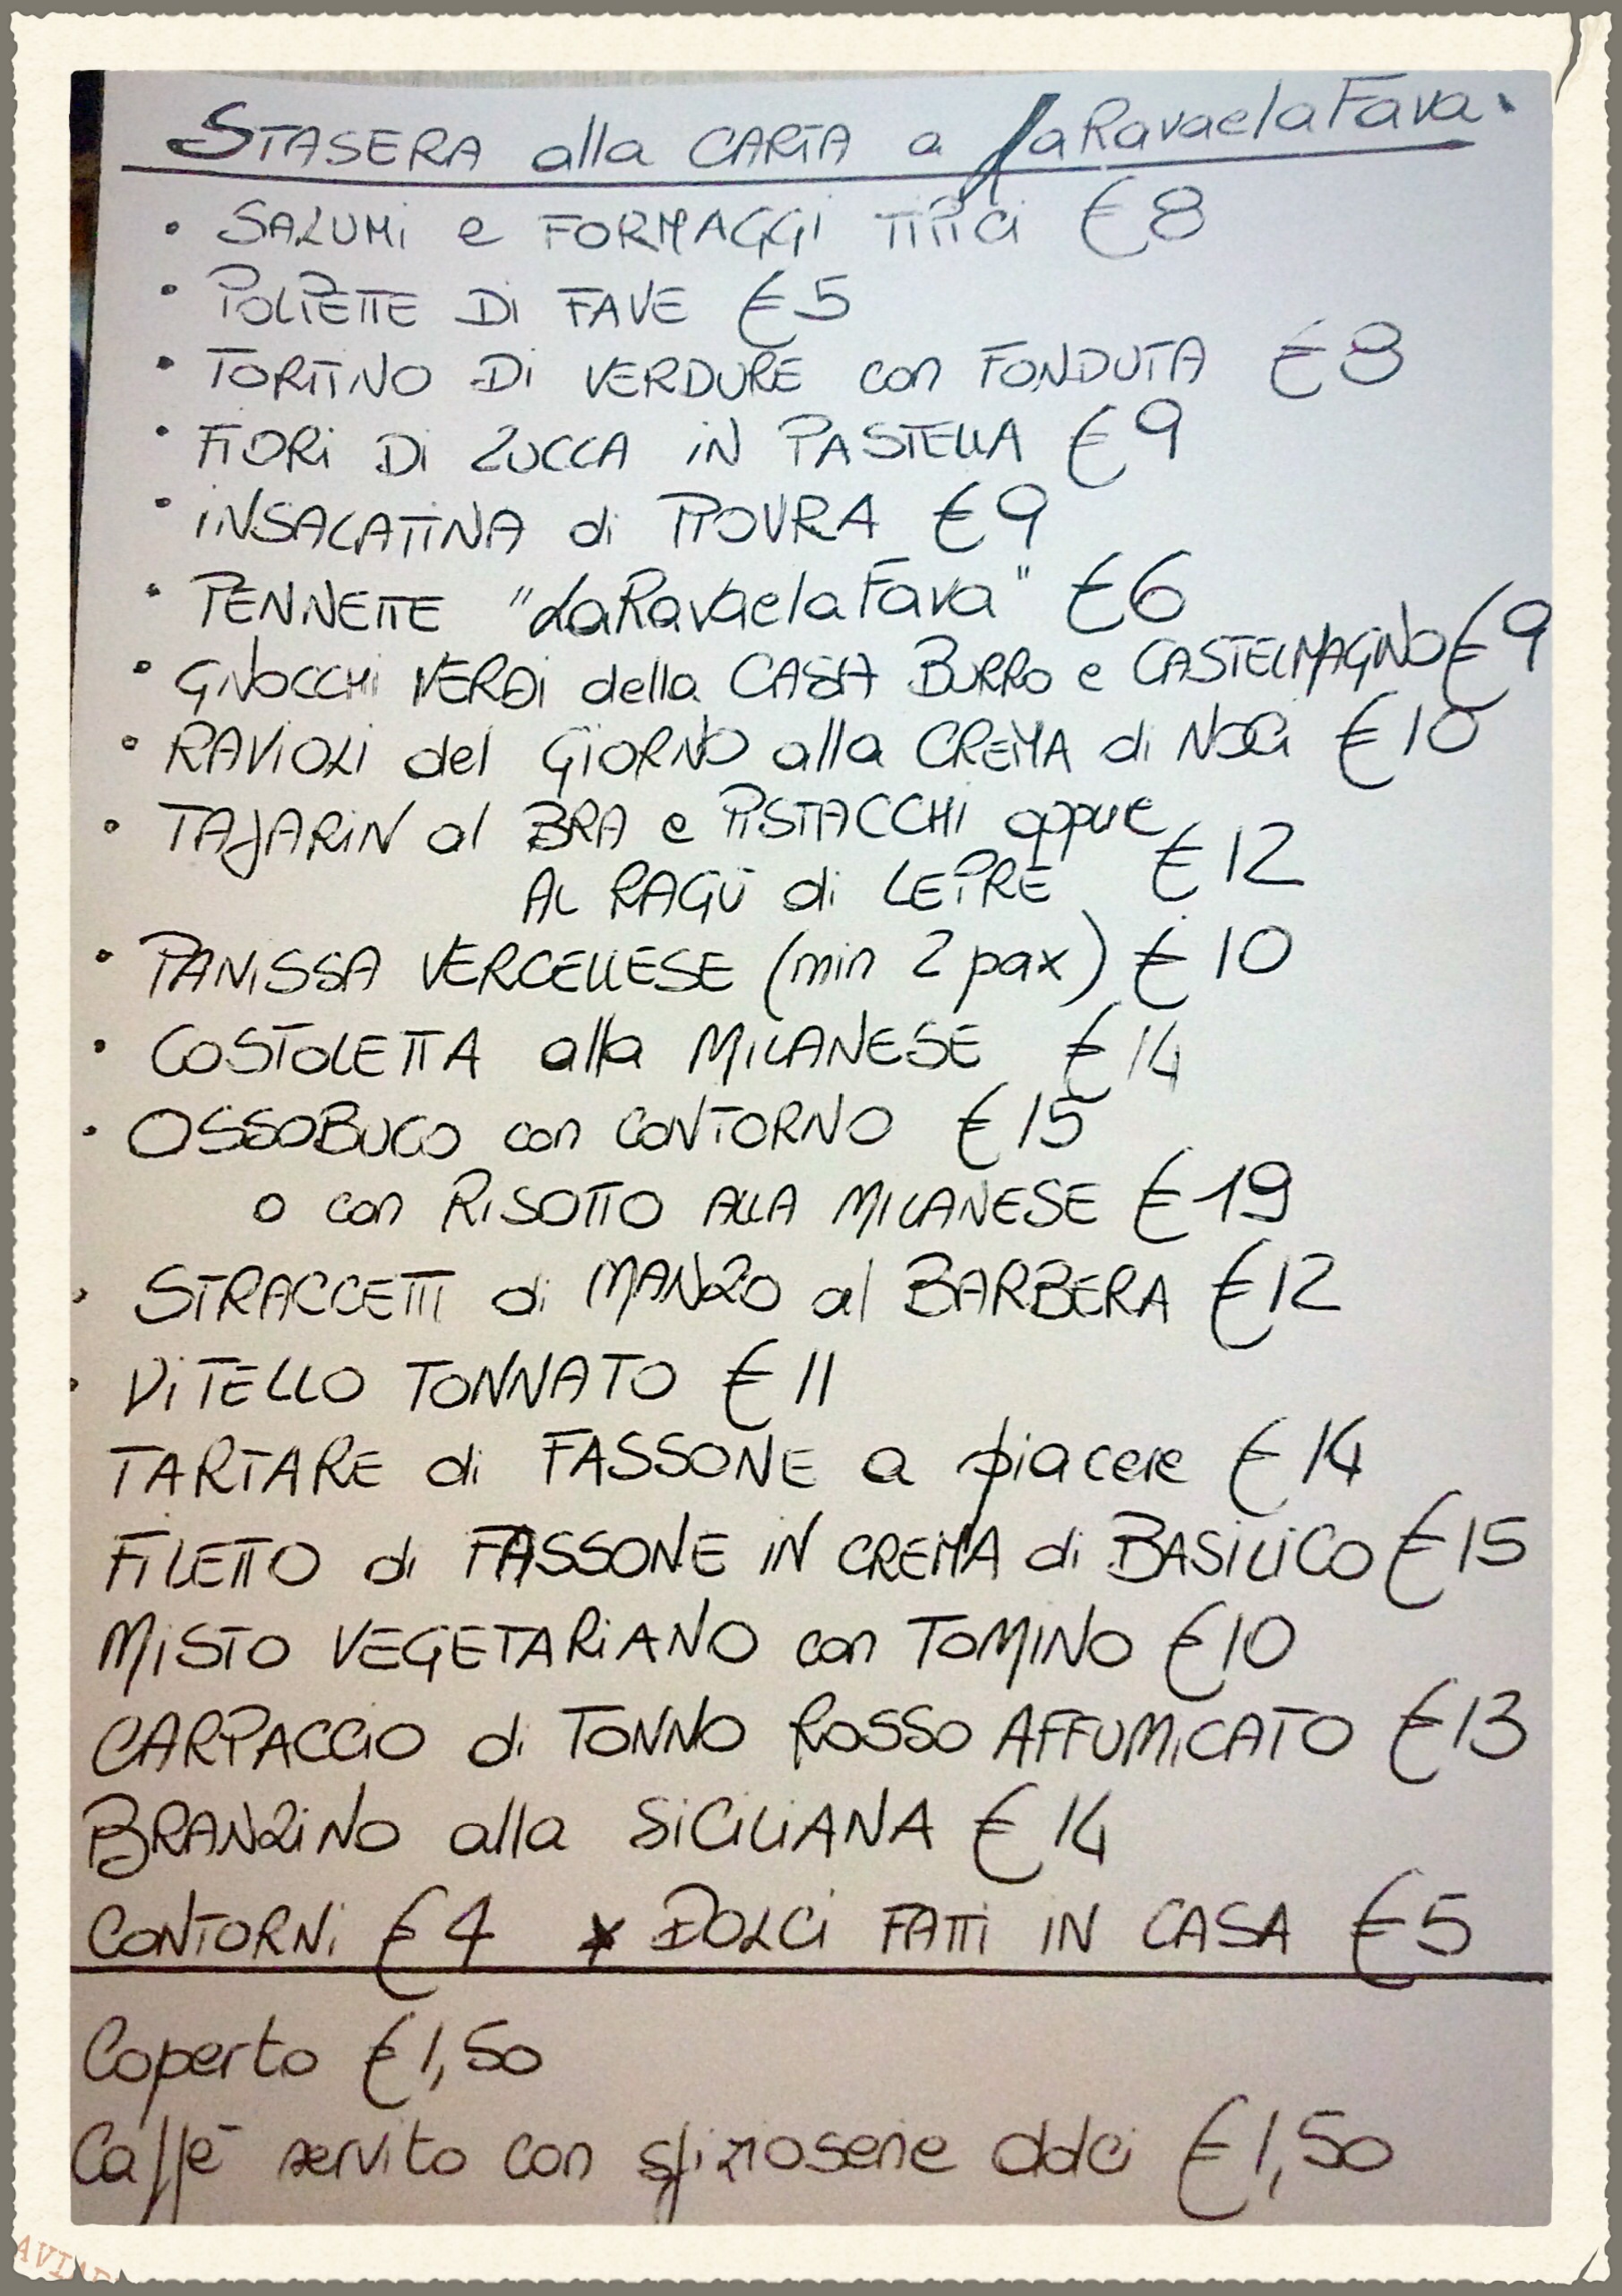 STASERA alla CARTA a LaRavaelaFava
• SALUMI e FORMAGGI TIPICI €8
• POLPETTE DI FAVE €5
• TORTINO DI VERDURE con FONDUTA €8
• FIORI DI ZUCCA IN PASTELLA €9
• INSALATINA di PIOVRA €9
• PENNETTE "LaRavaelaFava" €6
• GNOCCHI VERDI della CASA BURRO e CASTELMAGNO €9
• RAVIOLI del GIORNO alla CREMA di NOCI €10
• TAJARIN al BRA e PISTACCHI oppure
AL RAGÙ di LEPRE €12
• PANISSA VERCELLESE (min 2 pax) €10
• COSTOLETTA alla MILANESE €14
• OSSOBUCO con CONTORNO €15
o con RISOTTO ALLA MILANESE €19
• STRACCETTI di MANZO al BARBERA €12
• VITELLO TONNATO €11
TARTARE di FASSONE a piacere €14
FILETTO di FASSONE IN CREMA di BASILICO €15
MISTO VEGETARIANO con TOMINO €10
CARPACCIO di TONNO ROSSO AFFUMICATO €13
BRANZINO alla SICILIANA €14
CONTORNI €4 * DOLCI FATTI IN CASA €5
Coperto €1,50
Caffè servito con sfizioserie dolci €1,50